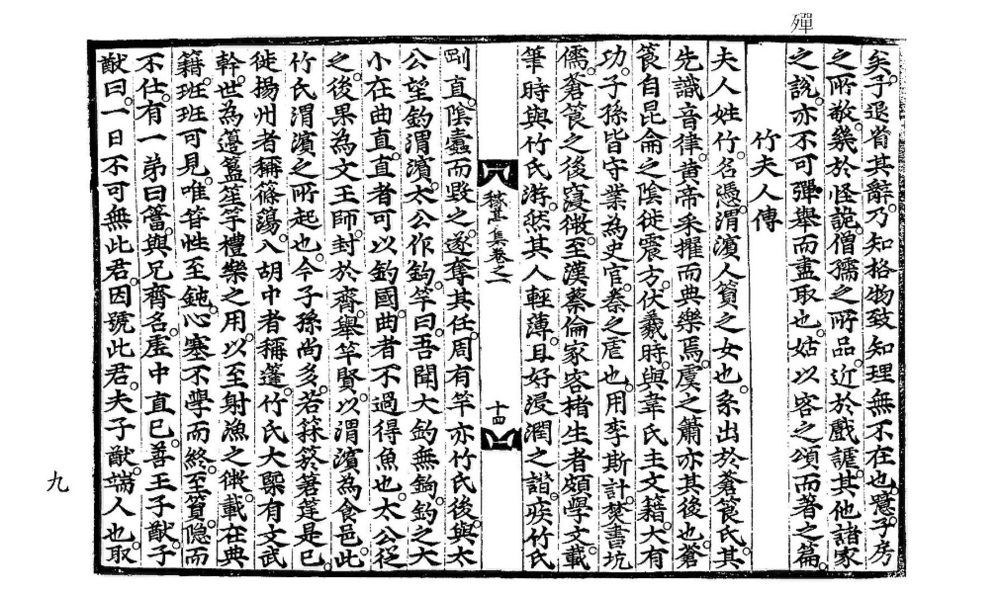 殫
矣予退省其辭乃知格物致知理無不在也噫子房
之所敬幾於怪詭僧孺之所品近於戲謔其他諸家
之說亦不可彈舉而盡取也姑以客之頌而著之篇
竹夫人傳
夫人姓竹名憑渭濱人篔之女也系出於蒼筤氏其
先識音律黃帝采擢而典樂焉虞之簫亦其後也蒼
筤自昆侖之陰徙震方伏羲時與韋氏主文籍大有
功子孫皆守業為史官秦之虐也用李斯計焚書坑
儒蒼筤之後寖微至漢蔡倫家客楮生者頗學文載
筆時與竹氏游然其人輕薄且好浸潤之譖疾竹氏
稼亭集卷之一
十四
剛直陰蠹而毀之遂奪其任周有竿亦竹氏後與太
公望釣渭濱太公作鉤竿曰吾聞大釣無鉤釣之大
小在曲直直者可以釣國曲者不過得魚也太公從
之後果為文王師封於齊舉竿賢以渭濱為食邑此
竹氏渭濱之所起也今子孫尚多若箖箊筳是已
徙揚州者稱篠簜入胡中者稱篷竹氏大槩有文武
幹世為籩簋笙竽禮樂之用以至射漁之微載在典
籍班班可見唯笞性至鈍心塞不學而終至篔隱而
不仕有一弟曰簹與兄齊名虛中直已善王子猷子
猷曰一日不可無此君因號此君夫子猷端人也取
九